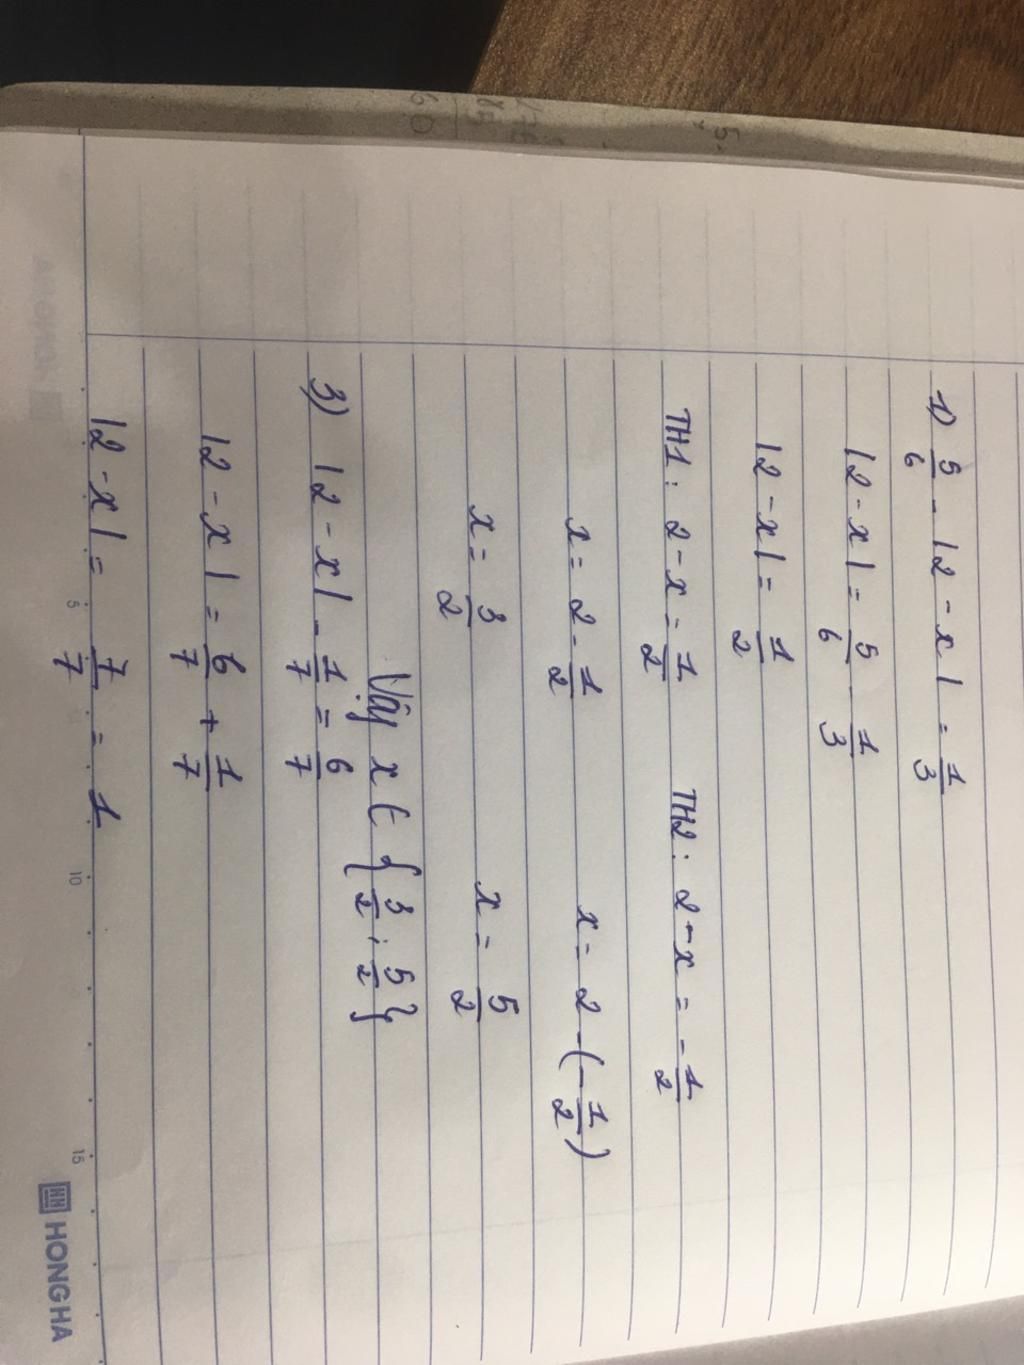 1) 5/6 - |2 - x| = 1/3
|2 - x| = 5/6 - 1/3
|2 - x| = 1/2
TH1: 2 - x = 1/2 TH2: 2 - x = -1/2
x = 2 - 1/2 x = 2 - (-1/2)
x = 3/2 x = 5/2
Vậy x ∈ {3/2; 5/2}
3) |2 - x| - 1/7 = 6/7
|2 - x| = 6/7 + 1/7
|2 - x| = 7/7 = 1
5 10 15
HH HONG HA